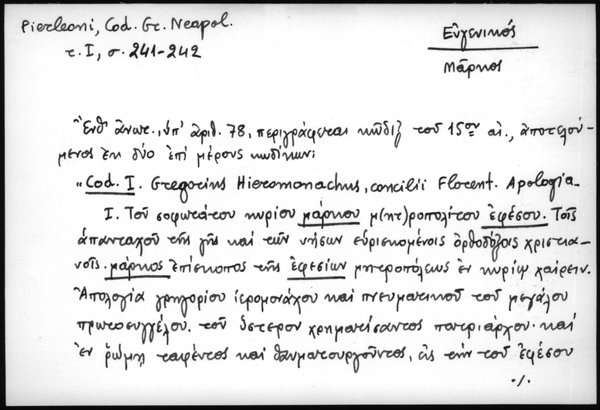 Pierleoni, Cod. Gr. Neapol.
τ. I, σ. 241-242
Εὐγενικός
Μᾶρκος
Ἔνθ' ἀνωτ., ὑπ' ἀριθ. 78, περιγράφεται κῶδιξ τοῦ 15ου αἰ., ἀποτελού-
μενος ἐκ δύο ἐπὶ μέρους κωδίκων:
"Cod. I. Gregorius Hieromonachus, concilii Florent. Apologia
I. Τοῦ σοφωτάτου κυρίου μάρκου μ(ητ)ροπολίτου ἐφέσου. Τοῖς
ἁπανταχοῦ τῆς γῆς καὶ τῶν νήσων εὑρισκομένοις ὀρθοδόξοις χριστια-
νοῖς. μάρκος ἐπίσκοπος τῆς ἐφεσίων μητροπόλεως ἐν κυρίῳ χαίρειν.
Ἀπολογία γρηγορίου ἱερομονάχου καὶ πνευματικοῦ τοῦ μεγάλου
πρωτοσυγγέλου. τοῦ ὕστερον χρηματίσαντος πατριάρχου· καὶ
ἐν ῥώμῃ ταφέντος καὶ θαυματουργοῦντος, εἰς τὴν τοῦ ἐφέσου
./.